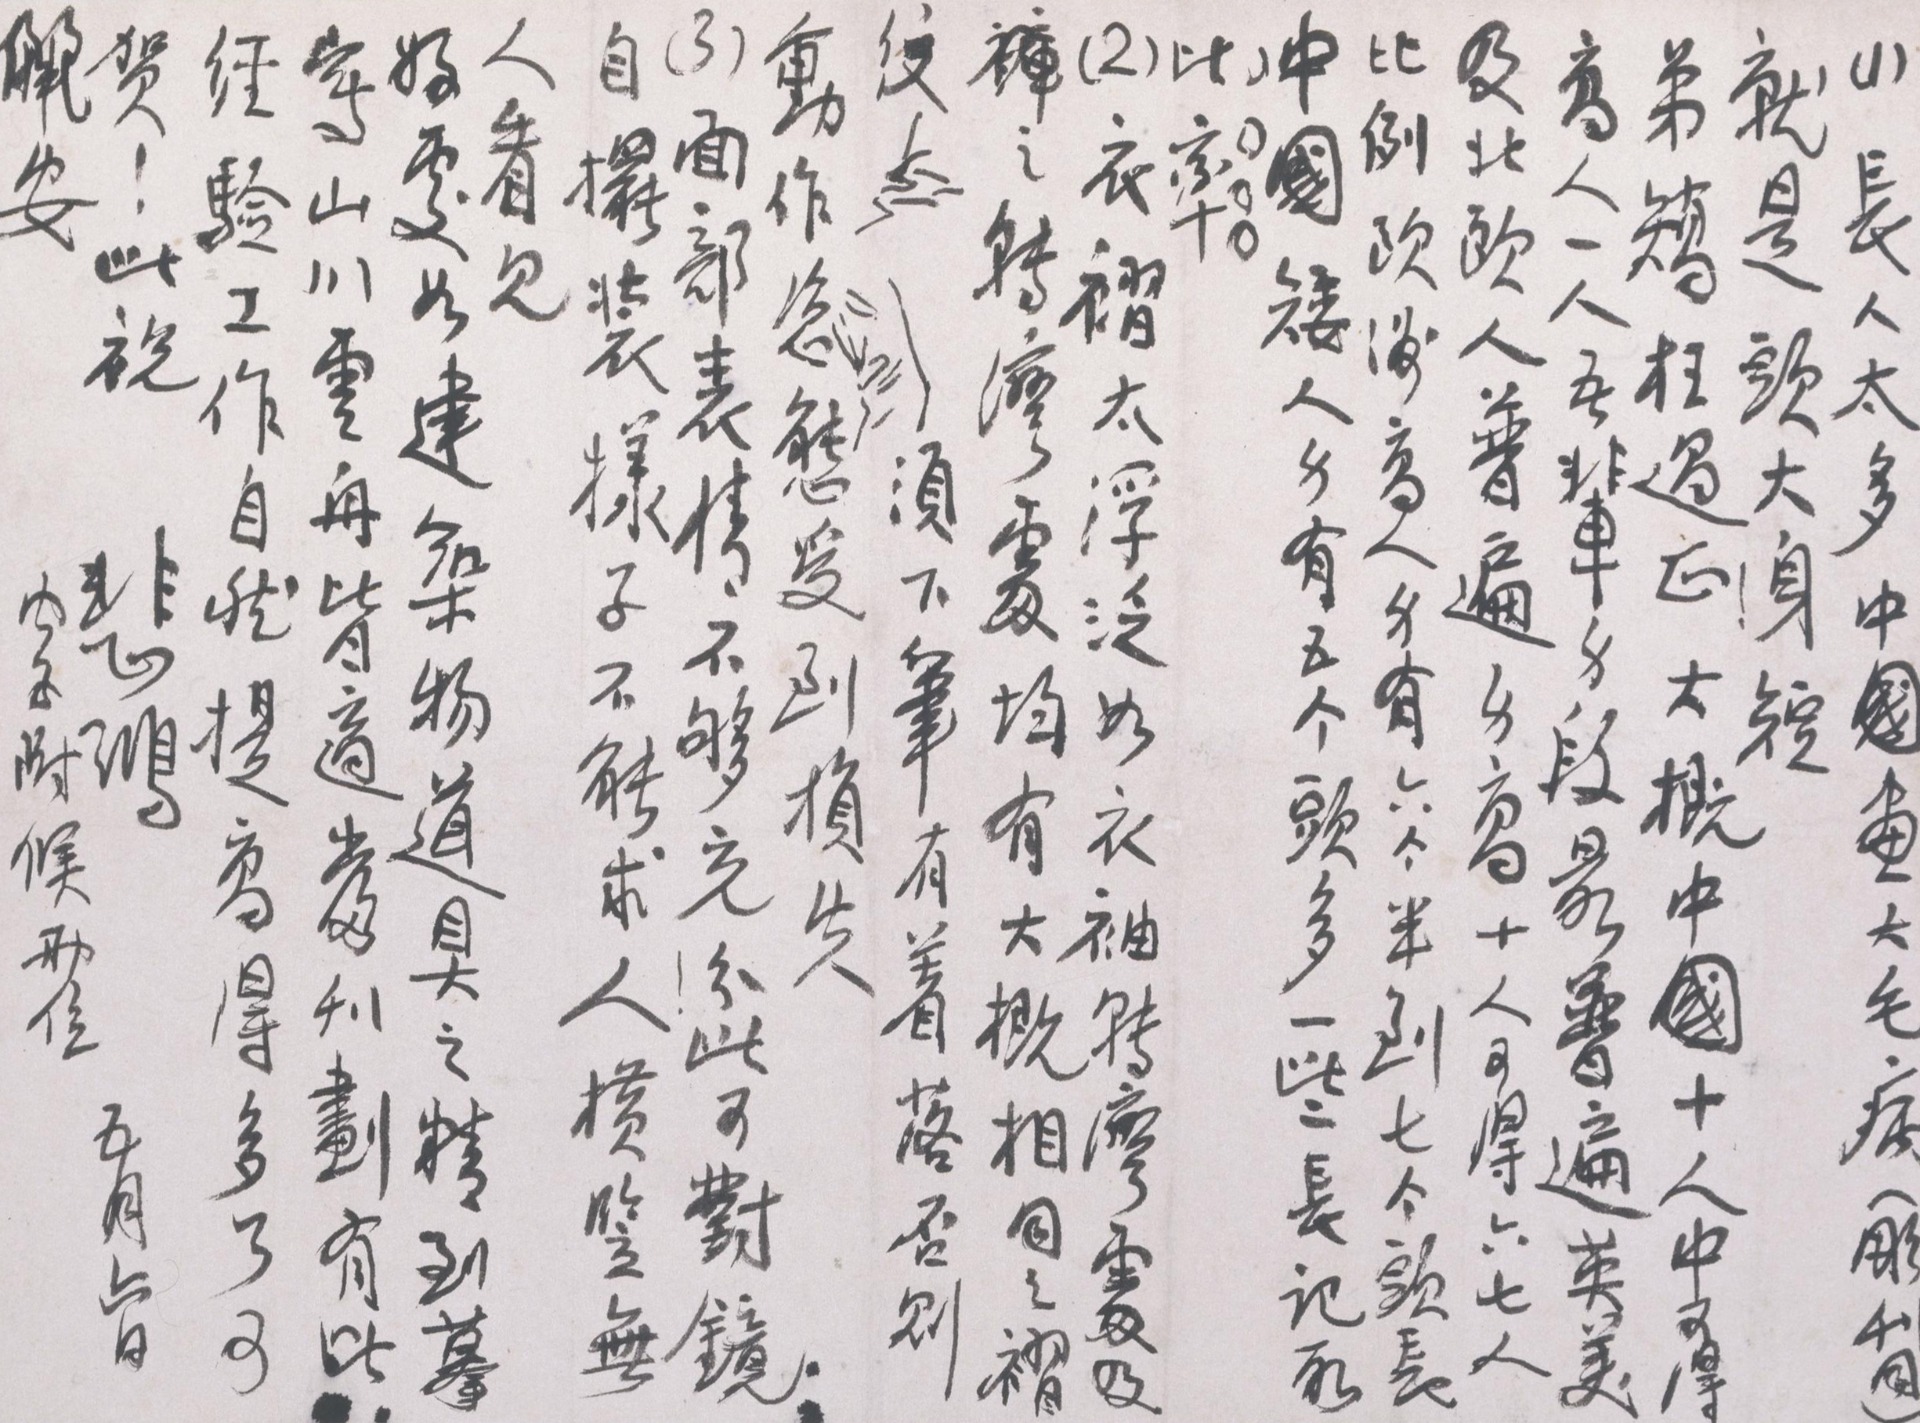 (1) 長人太多 中國畫大毛病(彫刻
就是頭大身短
弟矯枉過正 大概中國十人中可得
高人一人 吾輩身段最普遍 英美
及北歐人普遍身高十人可得六七人
比例 歐洲高人身有六个半到七个頭長
中國矮人身有五个頭多一些 長記死
此率
(2) 衣褶太浮泛 如衣袖轉灣處及
褲之轉灣處均有大概相同之褶
紋 須下筆有着落否則
動作姿態受到損失
(3) 面部表情不够充分 此可對鏡
自攝裝樣子不能求人橫豎無
人看見
好處如建築物道具之精到摹
寫山川雲舟皆適當刊劃有此
經驗工作自然提高得多了可
賀！此祝
儷安 悲鴻 五月六日
內子附候